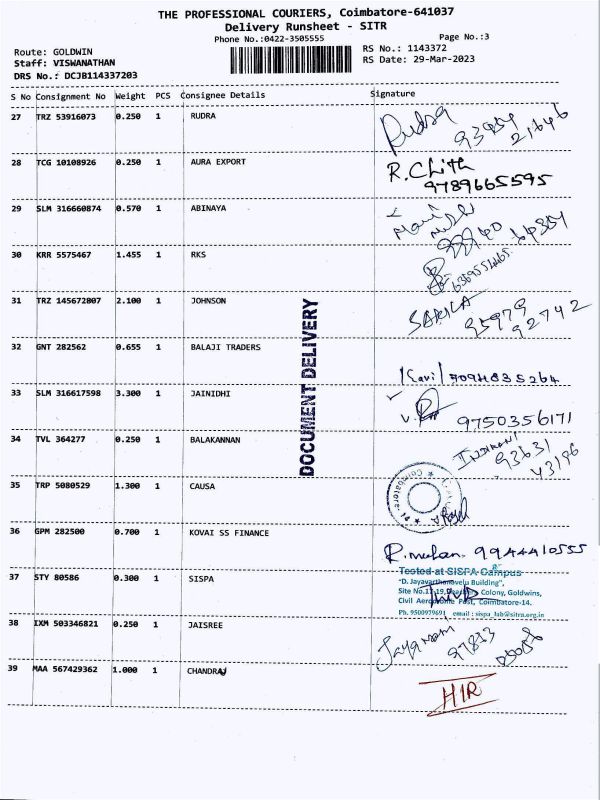 THE PROFESSIONAL COURIERS, Coimbatore-641037
Delivery Runsheet - SITR
Phone No.:0422-3505555
Page No.:3
Route: GOLDWIN
RS No.: 1143372
Staff: VISWANATHAN
RS Date: 29-Mar-2023
DRS No.: DCJB114337203
S No Consignment No Weight PCS Consignee Details Signature
27 TRZ 53916073 0.250 1 RUDRA Rudra
28 TCG 10108926 0.250 1 AURA EXPORT R. Chith
9789665595
29 SLM 316660874 0.570 1 ABINAYA
30 KRR 5575467 1.455 1 RKS
31 TRZ 145672807 2.100 1 JOHNSON SARIKA 95979
92742
32 GNT 282562 0.655 1 BALAJI TRADERS
Kavi 7094835264
33 SLM 316617598 3.300 1 JAINIDHI
9750356171
34 TVL 364277 0.250 1 BALAKANNAN 93631
43196
35 TRP 5080529 1.300 1 CAUSA
Coimbatore
36 GPM 282500 0.700 1 KOVAI SS FINANCE
9944410555
37 STY 80586 0.300 1 SISPA
Tested at SISPA Campus
"D. Jayavarthanavelu Building",
Colony, Goldwins,
Civil Aerodrome Post, Coimbatore-14.
Ph. 9500979691 email : sispa_lab@sitra.org.in
38 IXM 503346821 0.250 1 JAISREE Jayamani
39 MAA 567429362 1.000 1 CHANDRAJ
HIR
DOCUMENT DELIVERY